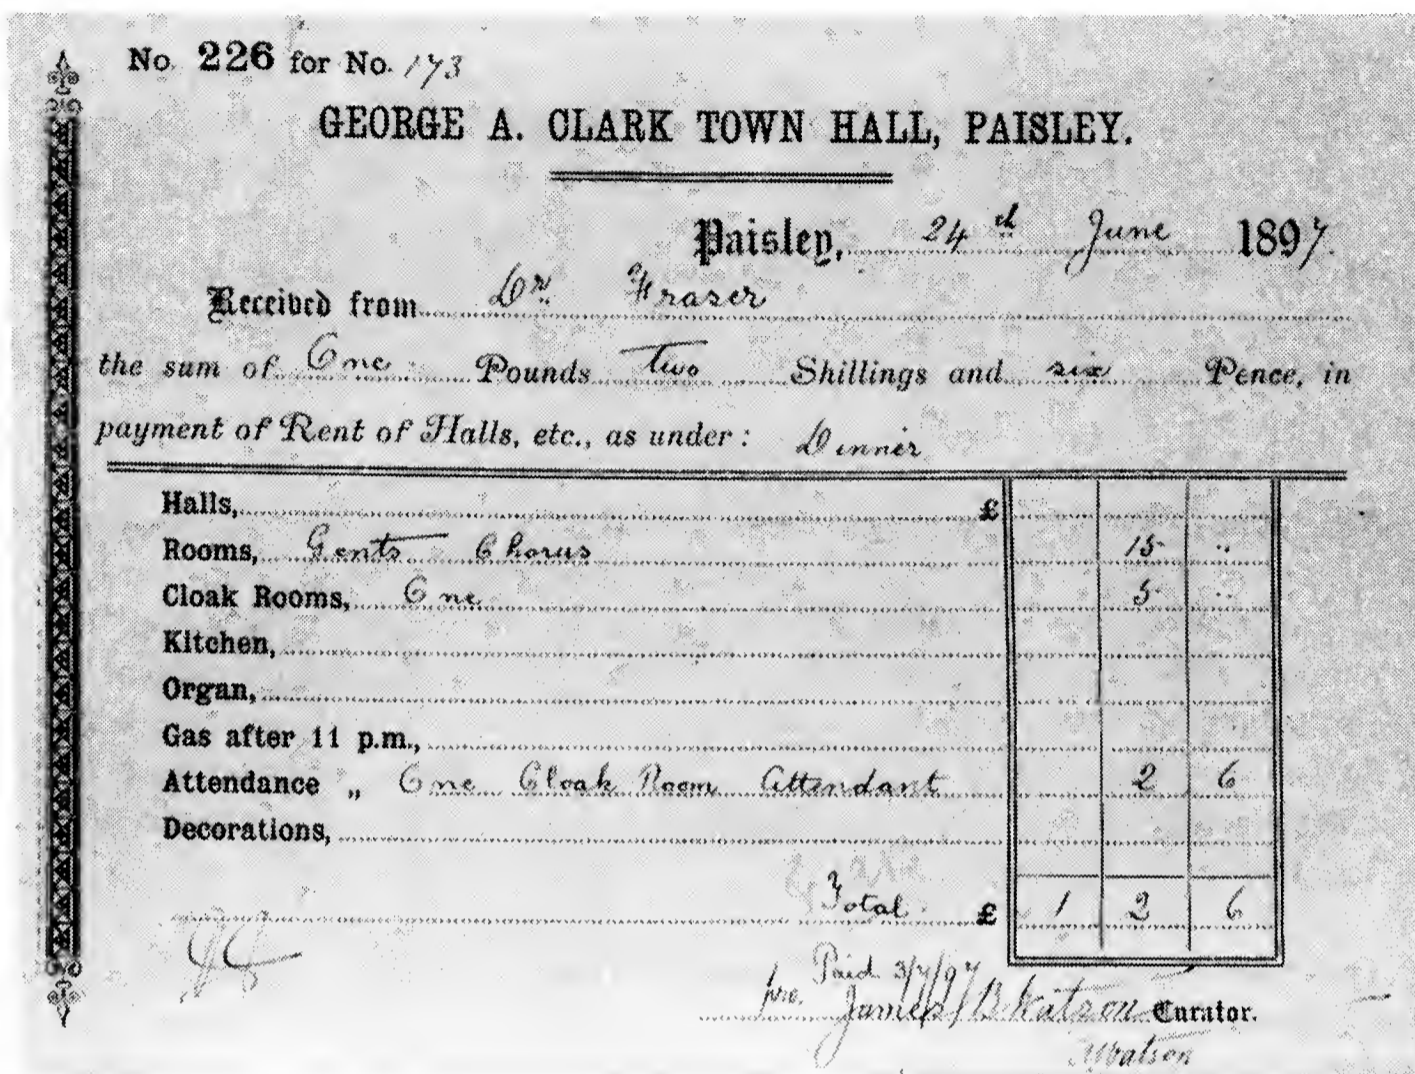 No. 226 for No. 173
GEORGE A. CLARK TOWN HALL, PAISLEY.
Paisley, 24th June 1897.
Received from Dr. Fraser
the sum of One Pounds Two Shillings and six Pence, in
payment of Rent of Halls, etc., as under: Dinner
Halls, £
Rooms, Gents Chorus 15 ..
Cloak Rooms, One 5 ..
Kitchen,
Organ,
Gas after 11 p.m.,
Attendance „ One Cloak Room Attendant 2 6
Decorations,
Total £ 1 2 6
Paid 3/7/97
pro. James B Watson Curator.
Watson